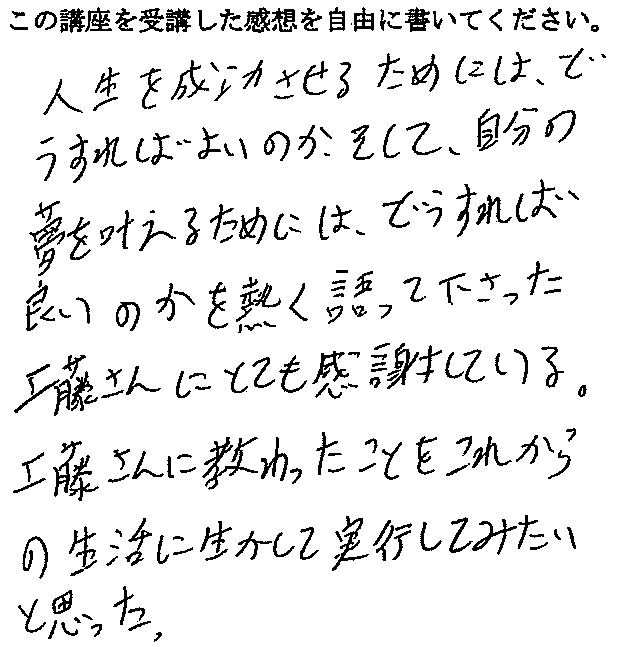 この講座を受講した感想を自由に書いてください。
人生を成功させるためには、ど
うすればよいのか、そして、自分の
夢を叶えるためには、どうすれば
良いのかを熱く語って下さった
工藤さんにとても感謝している。
工藤さんに教わったことをこれから
の生活に生かして実行してみたい
と思った,